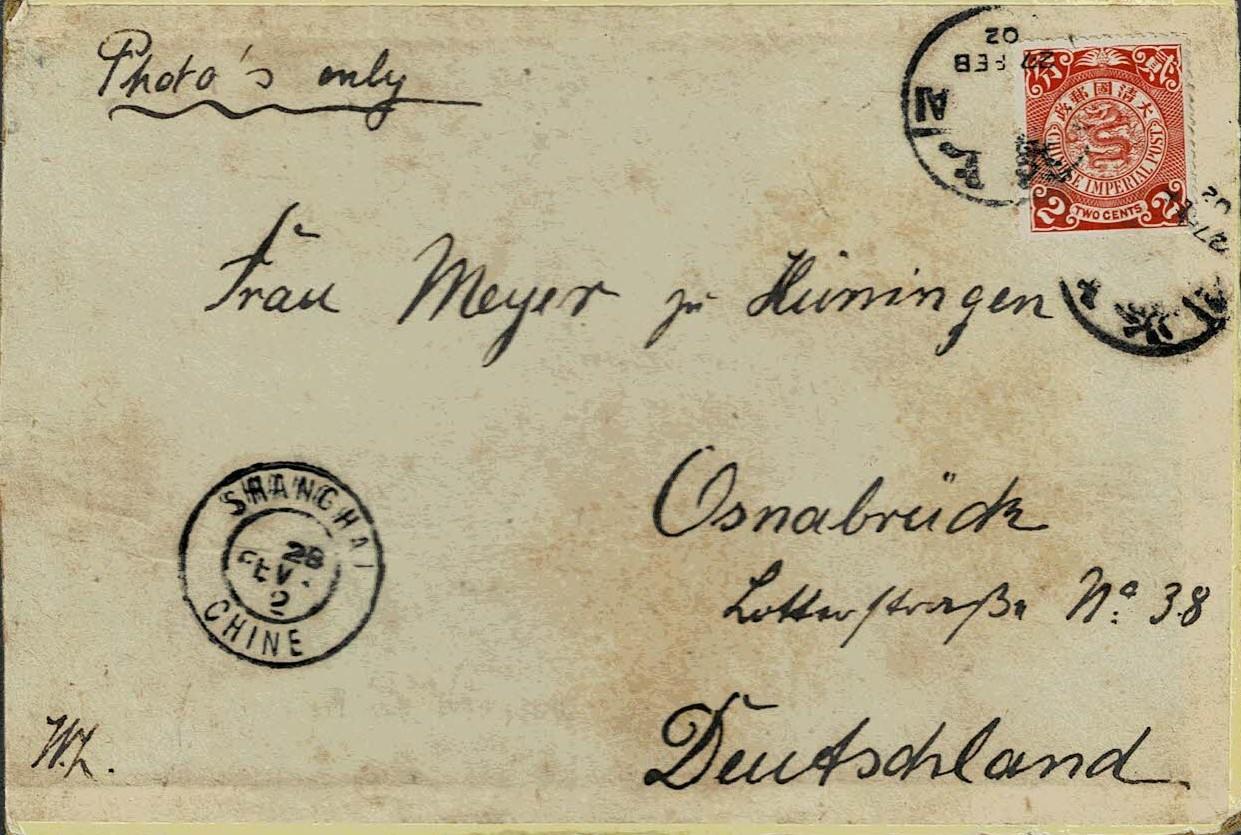 Photo's only
27 FEB
02
大清國郵政
貳 分
CHINESE IMPERIAL POST
2 TWO CENTS 2
27
02
Frau Meyer zu Hüningen
SHANGHAI
28
FEV.
2
CHINE
Osnabrück
Lotterstraße No. 38
Deutschland
W.L.